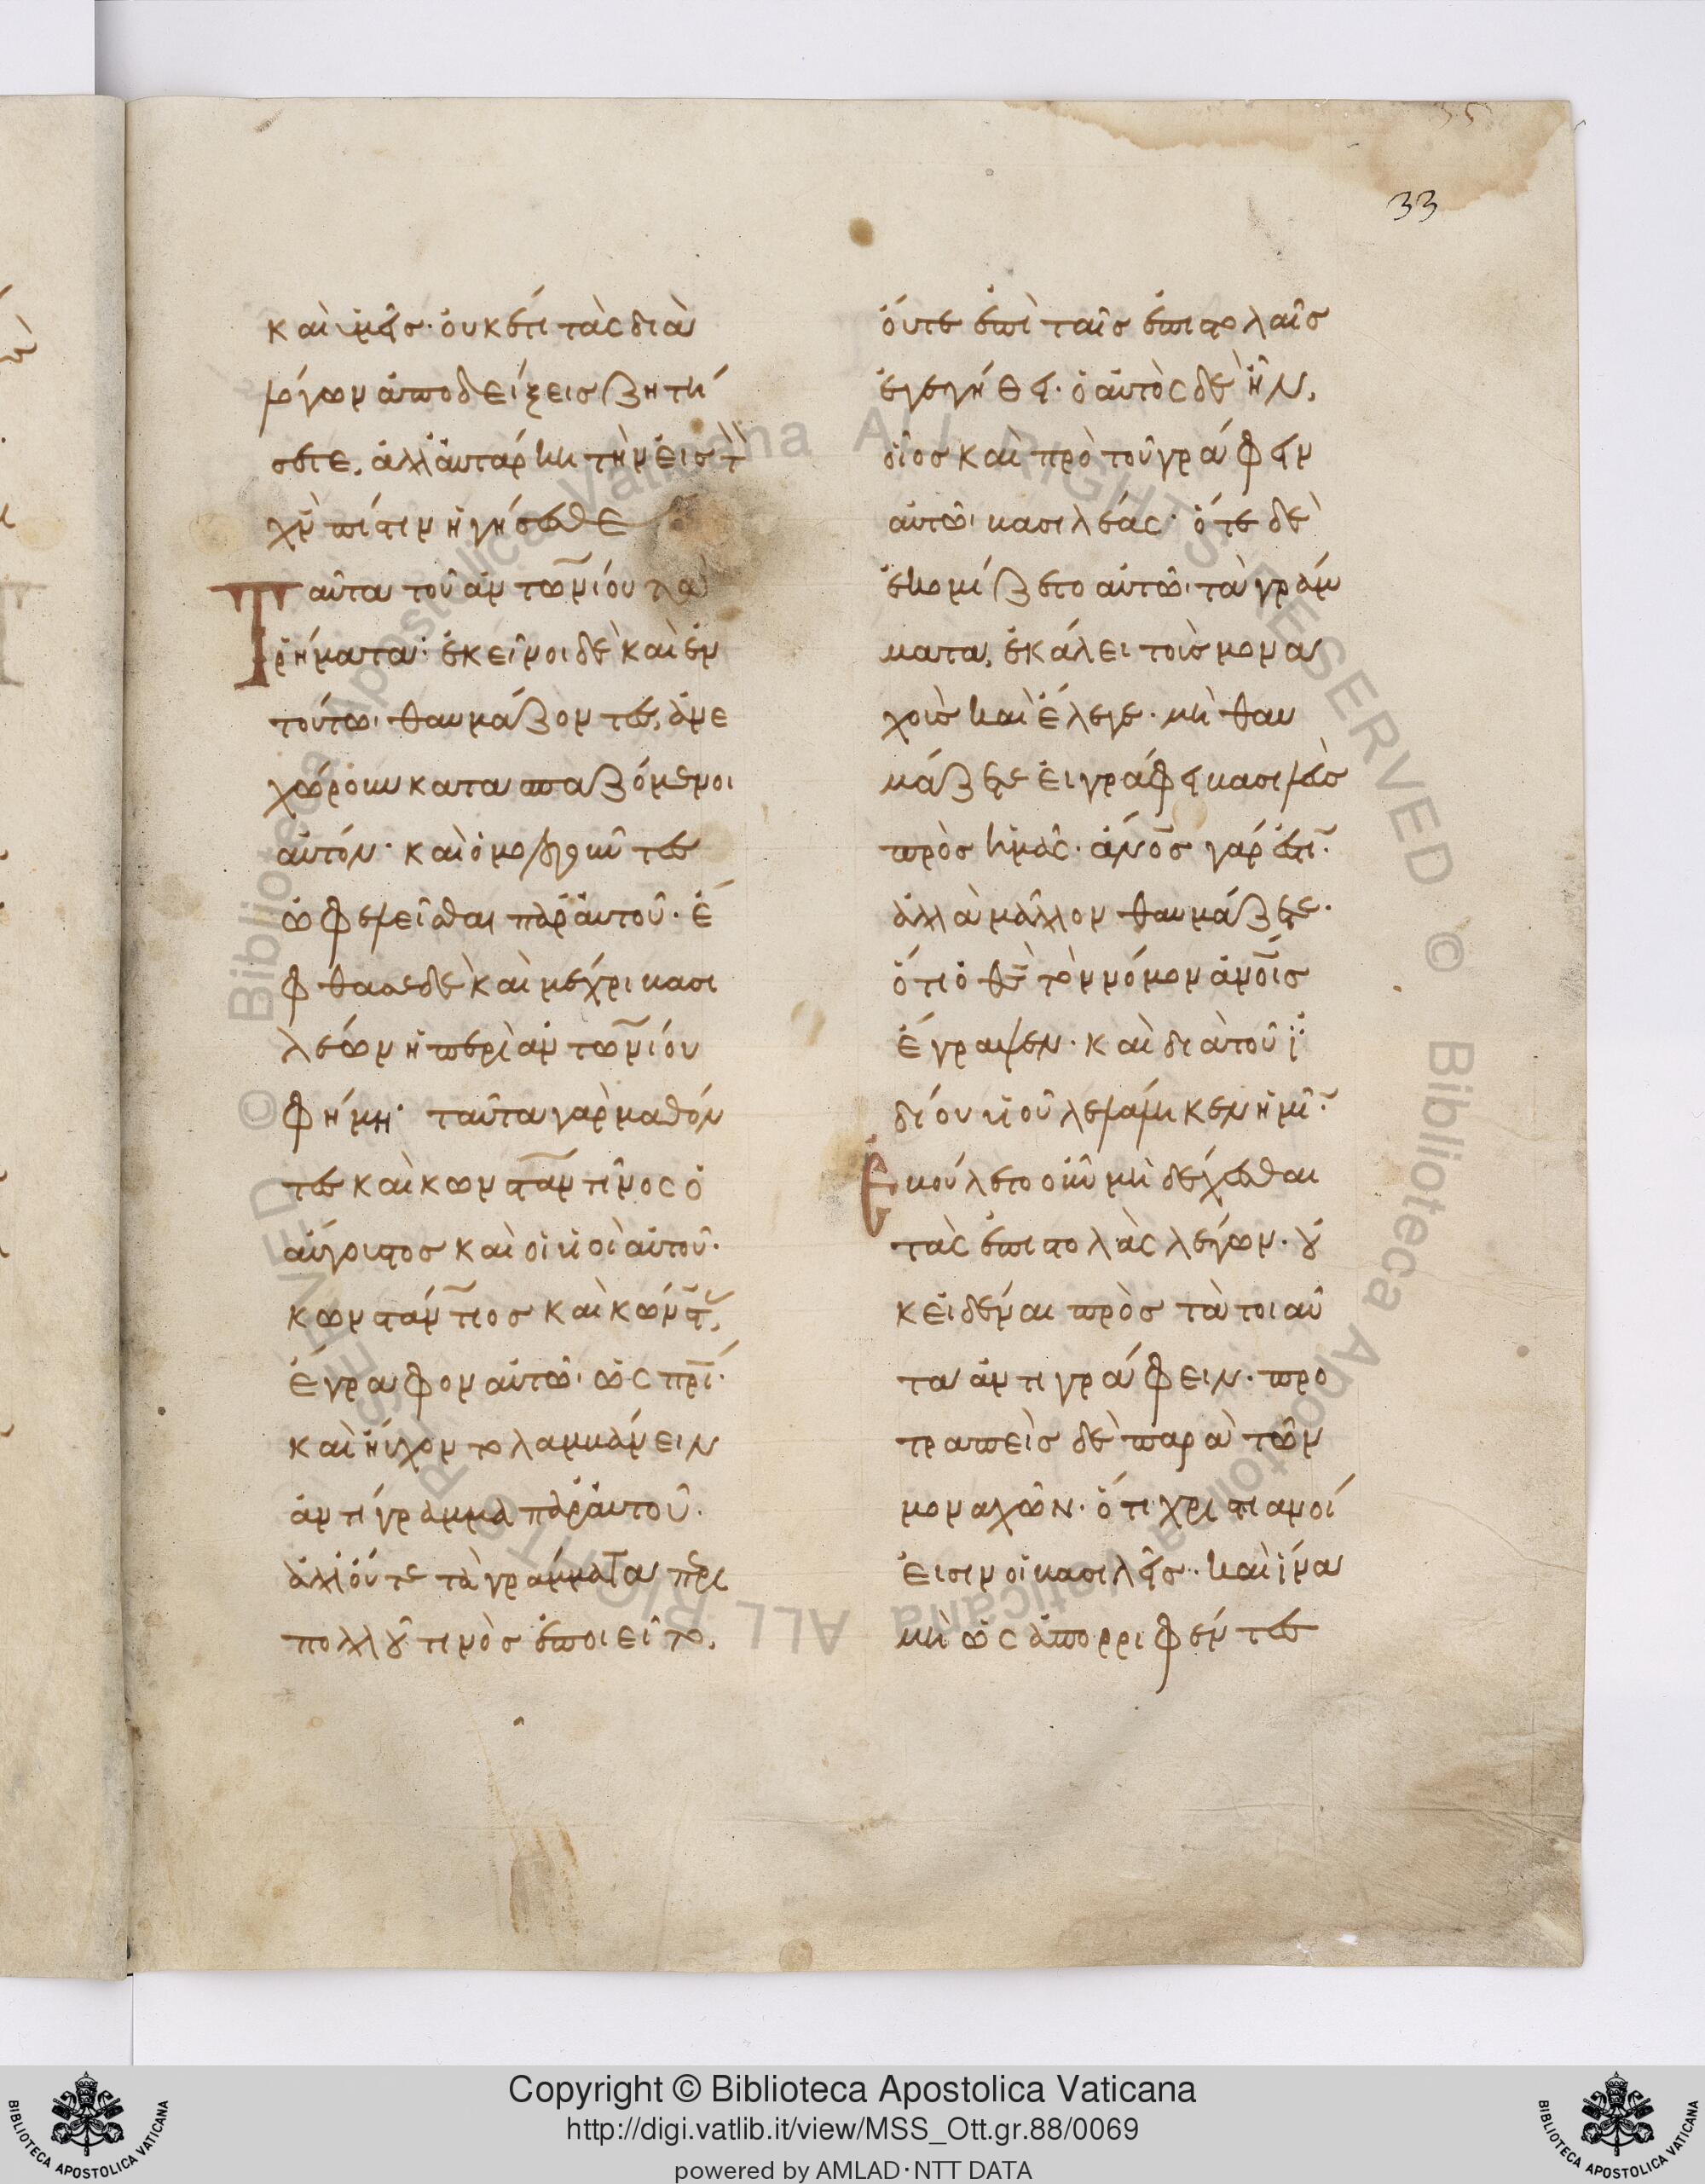 33
καὶ ὑμεῖς· ὀυκέτι τὰς διὰ
λόγων ἀποδείξεις ζητή
σετε, ἀλλ' ἀυτάρκη τὴν ἐις τ
χν πίστιν ἡγήσεσθε
Ταῦτα τοῦ ἀντωνίου τὰ
ῥήματα· ἐκεῖνοι δὲ καὶ ἐν
τούτω θαυμάζοντες, ἀνε
χώρουν κατασπαζόμενοι
ἀυτόν· καὶ ὁμολογοῦντες
ὠφελεῖσθαι παρ' ἀυτοῦ· ἔ
φθασε δὲ καὶ μέχρι βασι
λέων ἡ περὶ ἀντωνίου
φήμη· ταῦτα γὰρ μαθόν
τες καὶ κωνσταντῖνος ὁ
ἀύγουστος καὶ οἱ υἱοὶ ἀυτοῦ·
κωνστάντιος καὶ κώνστ,
ἔγραφον ἀυτῶ ὡς πρι·
καὶ ἠύχοντο λαμβάνειν
ἀντίγραμμα παρ' ἀυτοῦ·
ἀλλ' ὄυτε τὰ γράμματα περι
πολλοῦ τινὸς ἐποιεῖτο,
ὄυτε ἐπὶ ταῖς ἐπιστολαῖς
ἐγεγήθει· ὁ ἀυτὸς δὲ ἦν,
οἷος καὶ πρὸ τοῦ γράφειν
ἀυτῶ βασιλέας· ὅτε δὲ
ἐκομίζετο ἀυτῶ τὰ γράμ
ματα, ἐκάλει τοὺς μονα
χοὺς καὶ ἔλεγε· μὴ θαυ
μάζετε ἐι γράφει βασιλεὺς
πρὸς ἡμᾶς· ἀνος γάρ ἐστι·
ἀλλὰ μᾶλλον θαυμάζετε·
ὅτι ὁ θς τὸν νόμον ἀνοις
ἔγραψεν· καὶ διὰ τοῦ ἰ
δίου υἱοῦ λελάληκεν ἡμῖ·
Ἐβούλετο οὖν μὴ δέχεσθαι
τὰς ἐπιστολὰς λέγων· οὐ
κ ἐιδέναι πρὸς τὰ τοιαῦ
τα ἀντιγράφειν· προ
τραπεὶς δὲ παρὰ τῶν
μοναχῶν· ὅτι χριστιανοί
ἐισιν οἱ βασιλεῖς· καὶ ἵνα
μὴ ὡς ἀπορριφέντες
Copyright © Biblioteca Apostolica Vaticana
http://digi.vatlib.it/view/MSS_Ott.gr.88/0069
powered by AMLAD·NTT DATA